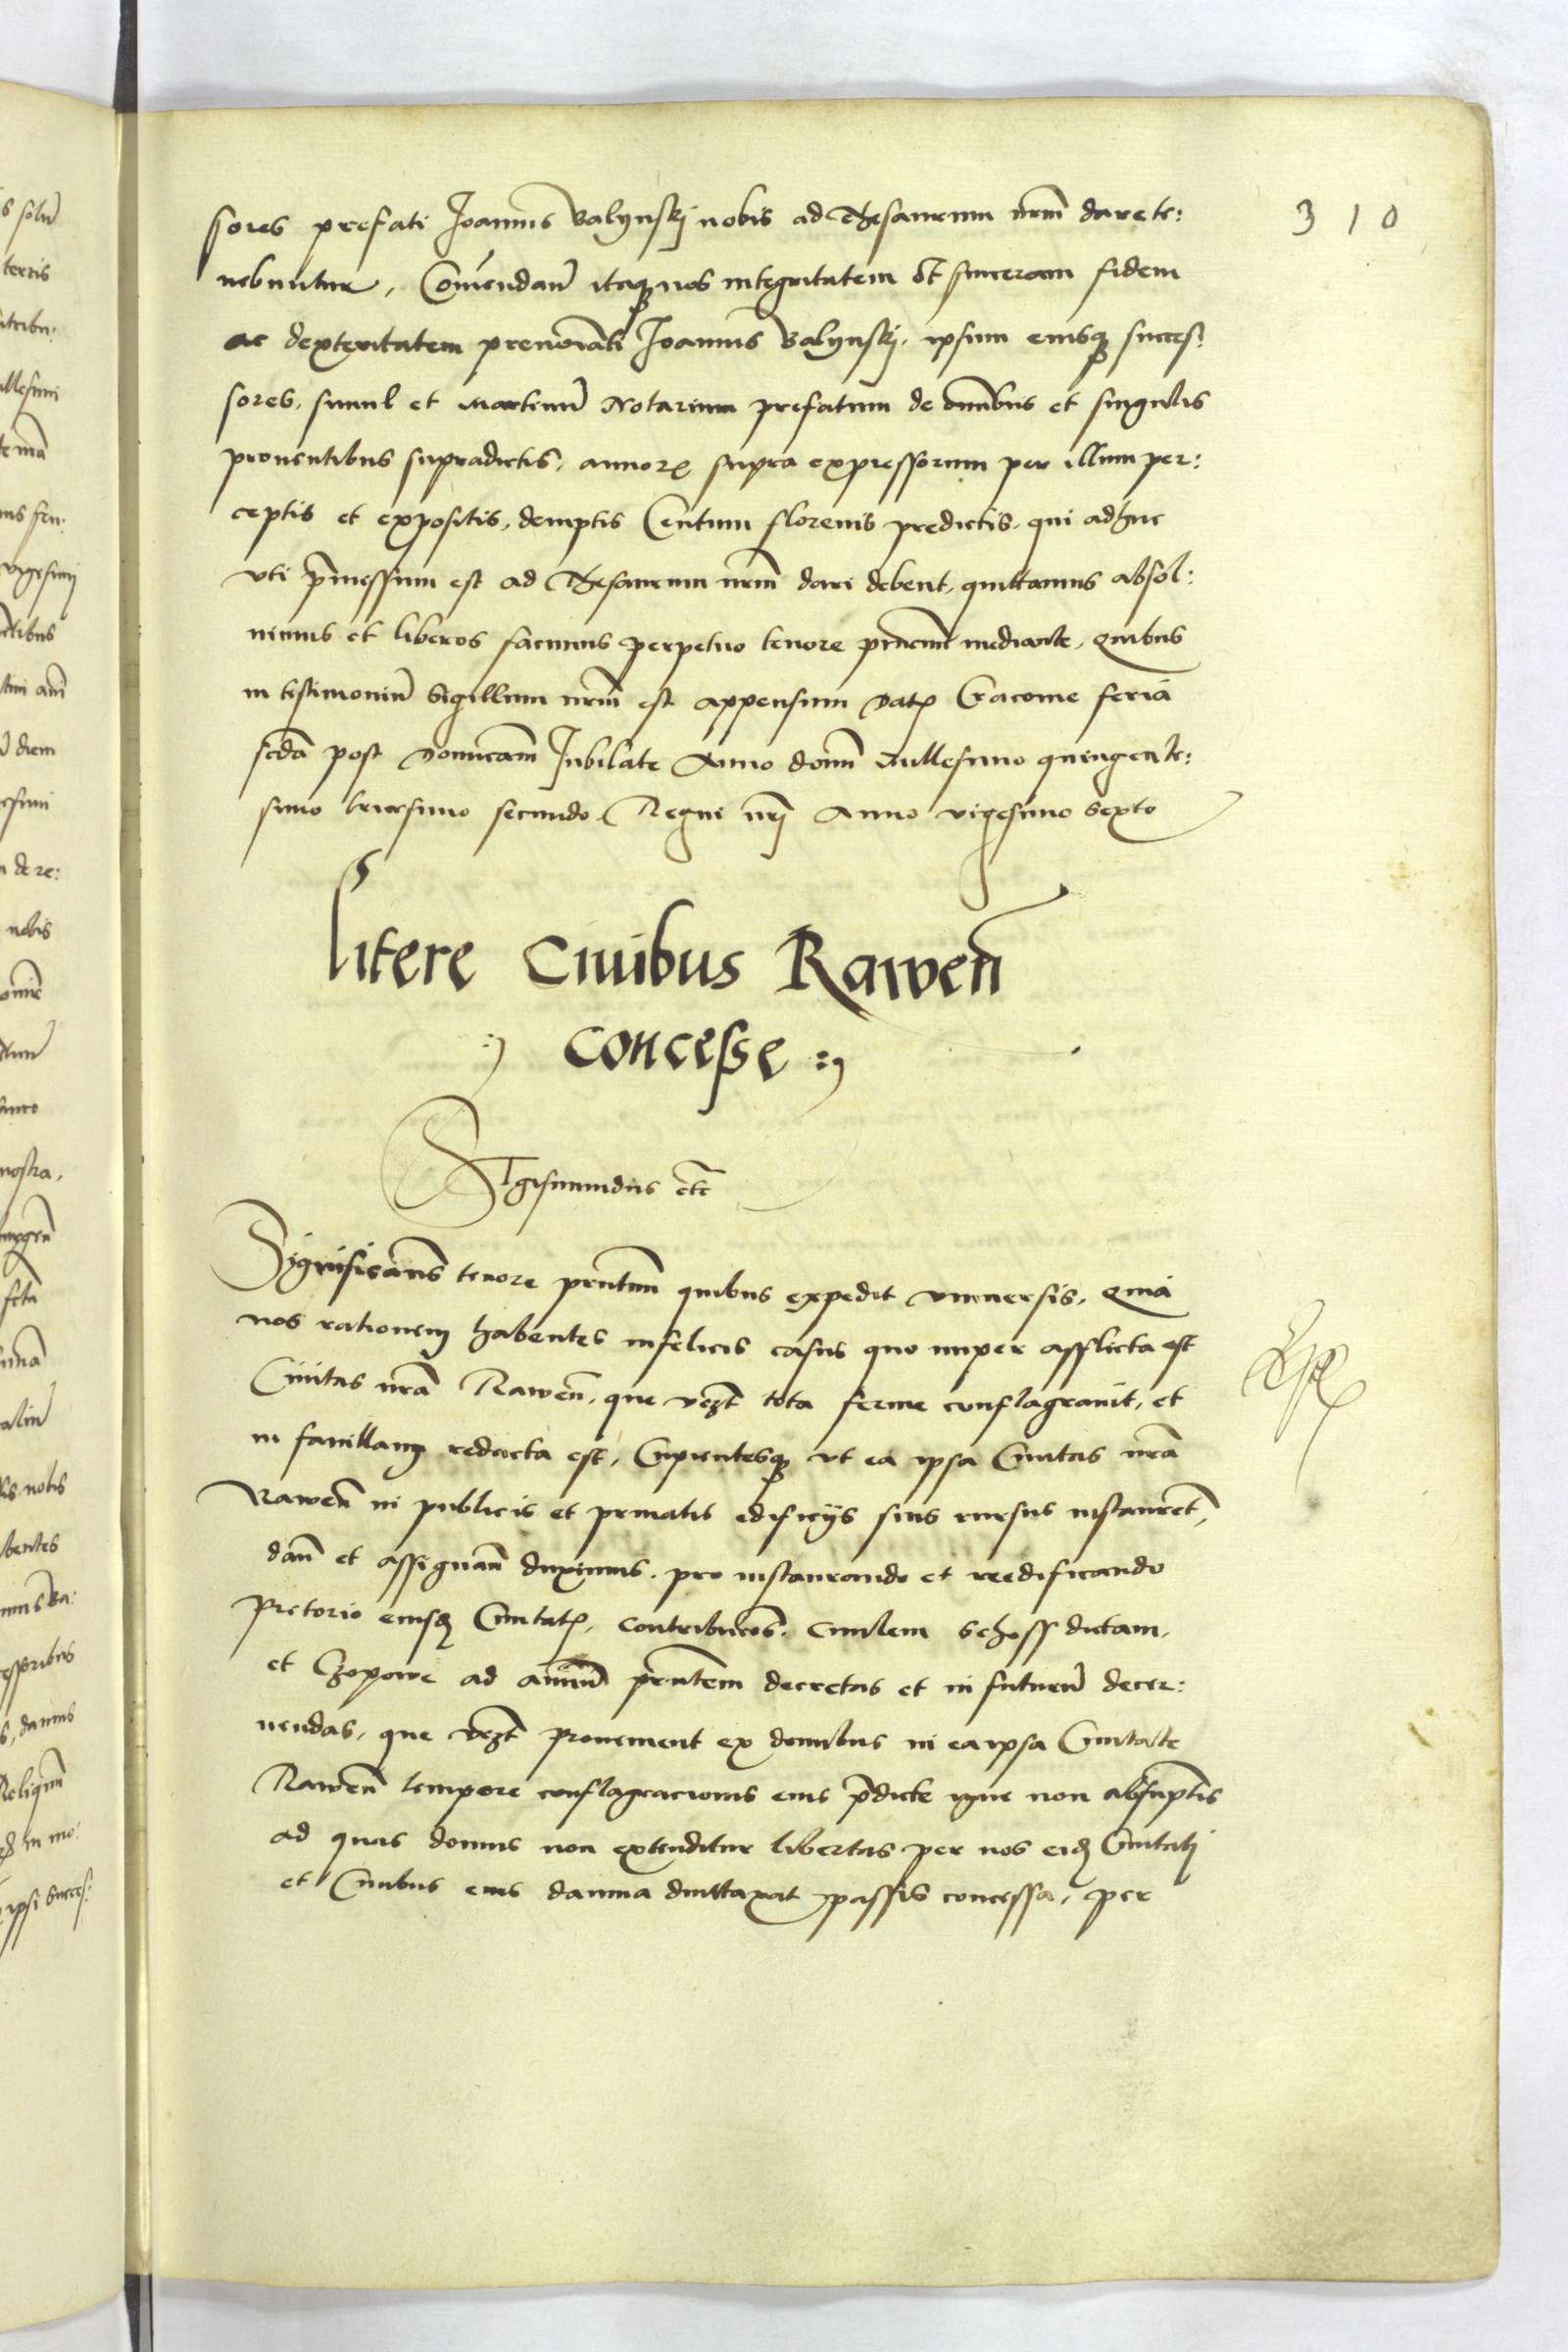 310
sores prefati Joannis Valynskj nobis ad Thesaurum nrm̃ dare te:
nebuntur, Com̃endan̄ itaqꝫ nos integritatem et sinceram fidem
ac dexteritatem prenoĩati Joannis Valynskj, ipsum eiusqꝫ succes:
sores, simul et Martinũ Notarium prefatum de om̃ibus et singulis
prouentibus supradictis, annorꝫ supra expressorum per illum per:
ceptis et expositis, demptis Centum florenis predictis, qui adhuc
vti p̃missum est ad Thesaurum nrm̃ dari debent, quittamus absol:
uimus et liberos facimus perpetuo tenore pñcium mediante, Quibus
in testimoniũ Sigillum nrm̃ est appensum Datꝫ Cracouie feria
scda post Dominicam Jubilate Anno domi Millesimo quingente:
simo tricesimo secundo, Regni nrj Anno vigesimo sexto
Litere Ciuibus Rawen̄
concesse
Sigismundus etc
Significam̃s tenore pñtium quibus expedit vniuersis, Quia
nos rationem habentes infelicis casus quo nuper afflicta est
Ciuitas nrã Rawen̄, que vꝫt tota ferme conflagrauit, et
in fauillam redacta est, Cupientesqꝫ vt ea ipsa Ciuitas nrã
Rawen̄ in publicis et priuatis edificijs suis rursus instauret̃,
dan̄ et assignan̄ duximus, pro instaurando et reedificando
Pretorio eiusdꝫ Ciuitatꝫ, contributões, Ciuilem Schoss dictam,
et Czopowe ad annũ pñtem decretas et in futurũ decer:
nendas, que vꝫt prouenient ex domibus in ea ipsa Ciuitate
Rawen̄ tempore conflagracionis eius p̃dicte igne non absumptis
ad quas domus non extenditur libertas per nos eidꝫ Ciuitatj
et Ciuibus eius damna duntaxat passis concessa, per